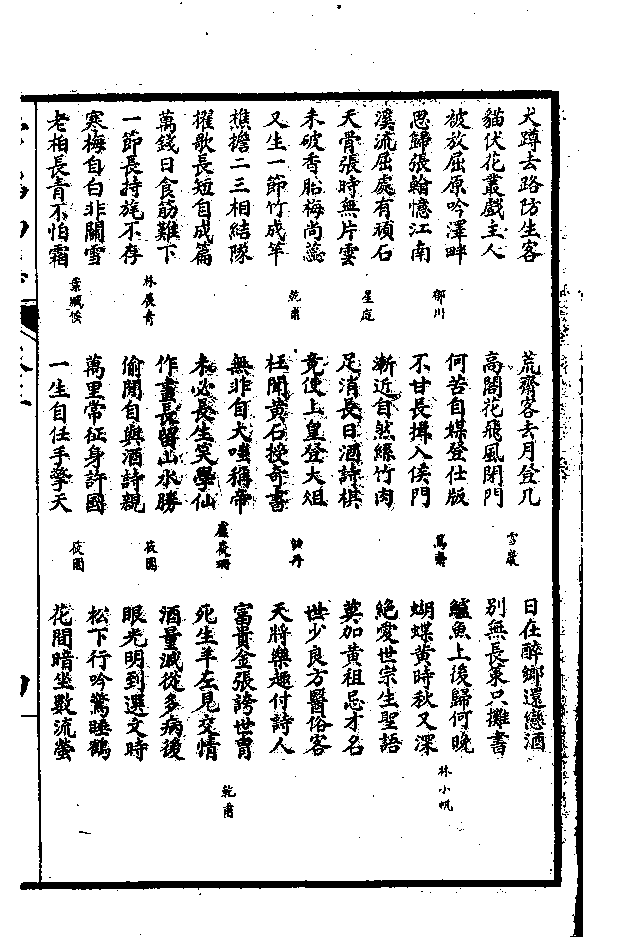 犬蹲去路防生客
貓伏花叢戲主人
被放屈原吟澤畔
思歸張翰憶江南
溪流屈處有頑石
天骨張時無片雲
星庭
未破香胎梅尚蕊
又生一節竹成竿
乾甫
樵擔二三相結隊
櫂歌長短自成篇
萬錢日食筯難下
一節長持旄不存
林展青
寒梅自白非關雪
老柏長青不怕霜
荒齋客去月登几
高閣花飛風閉門
雪巖
何苦自媒登仕版
不甘長揖入侯門
篤齋
漸近自然絲竹肉
足消長日酒詩棋
竟使上皇登大俎
枉聞黃石授奇書
幼丹
無非自大嗤稱帝
未必長生笑學仙
盧莪珊
作畫長留山水勝
偷閒自與酒詩親
莜園
萬里常征身許國
一生自任手擎天
莜園
日在醉鄉還戀酒
別無長策只攤書
鱸魚上後歸何晚
蝴蝶黃時秋又深
林小帆
絕愛世宗生聖語
莫加黃祖忌才名
世少良方醫俗客
天將樂趣付詩人
富貴金張誇世冑
死生羊左見交情
乾甫
酒量減從多病後
眼光明到選文時
松下行吟驚睡鶴
花間暗坐數流螢